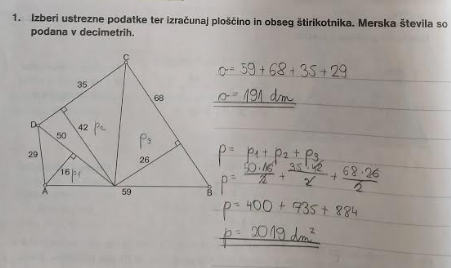 1. Izberi ustrezne podatke ter izračunaj ploščino in obseg štirikotnika. Merska števila so
podana v decimetrih.
C
35
68
o = 59 + 68 + 35 + 29
o = 191 dm
D
42 p2
p3
50
26
29
16 p1
A
59
B
p = p1 + p2 + p3
p = 50·16/2 + 35·42/2 + 68·26/2
p = 400 + 735 + 884
p = 2019 dm²